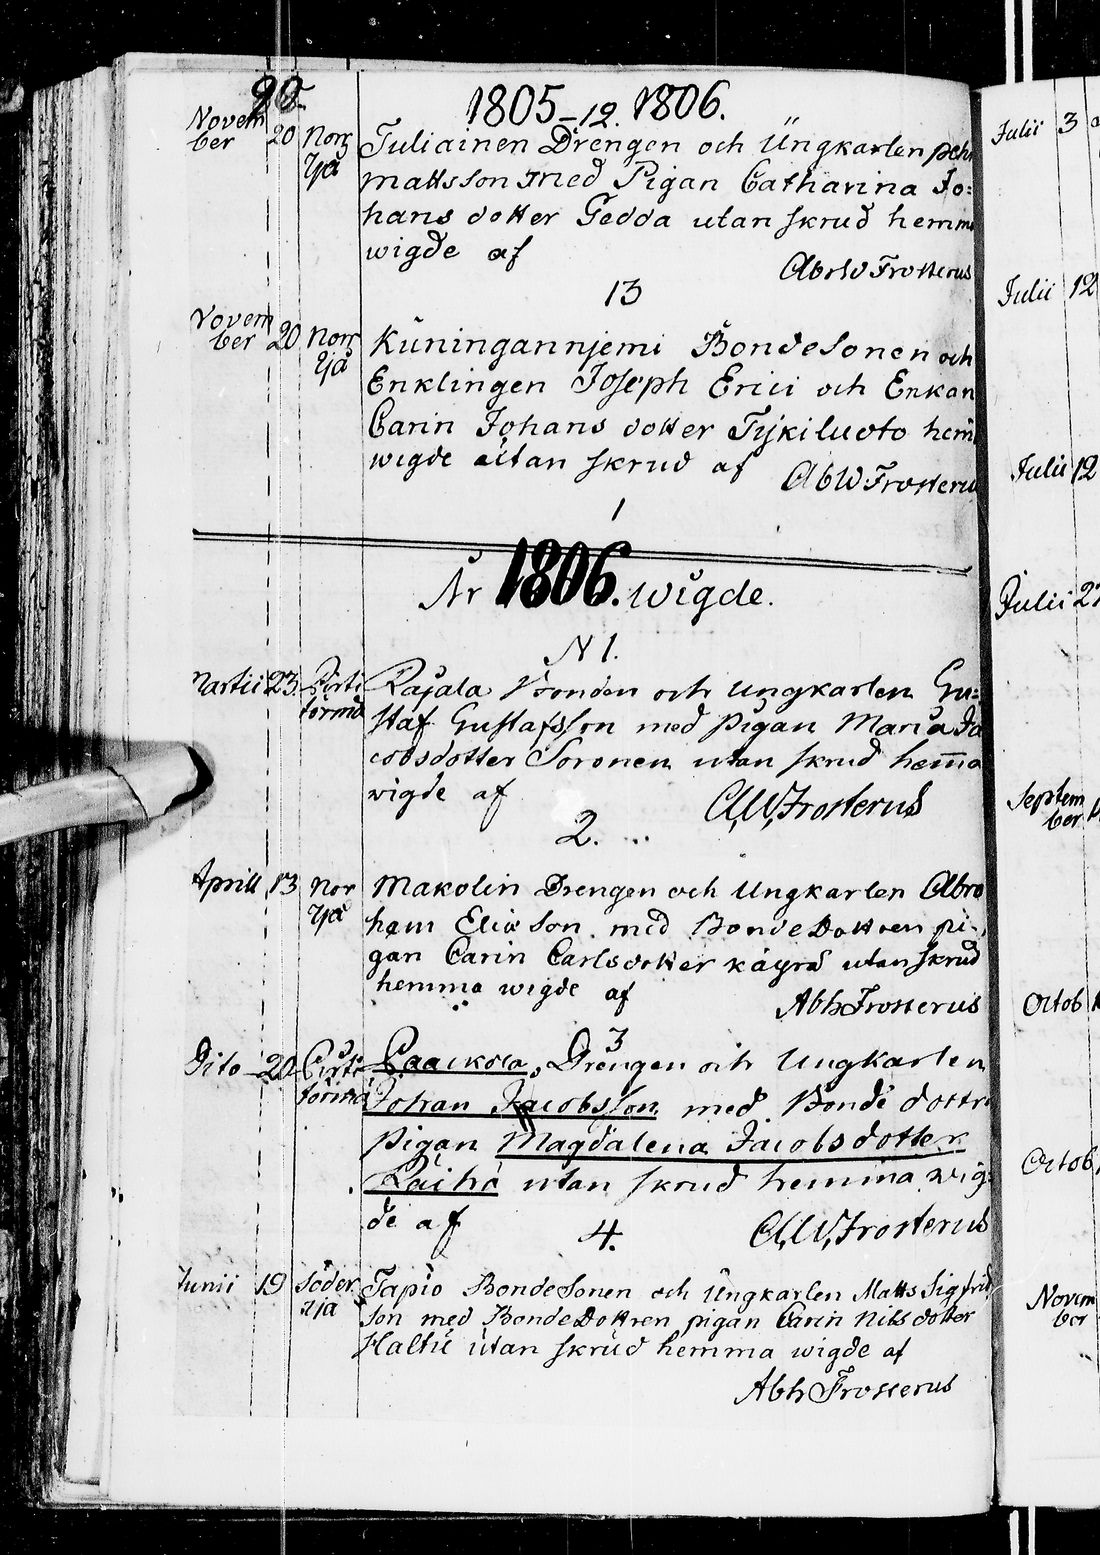 1805-12. 1806.
Novem
ber 20 Norr
yå
Juliainen Drengen och Ungkarlen Pehr
Mattsson med Pigan Catharina Jo:
hans dotter Gedda utan skrud hemma
wigde af
Abr W Frosterus
13
Novem
ber 20 Norr
yå
Kuningannjemi BondeSonen och
Enklingen Joseph Erici och Enkan
Carin Johans dotter Tykiluoto hem
wigde utan skrud af AbWFrosterus
1
År 1806. wigde.
N 1.
Martii 23.
Rajala Bonden och Ungkarlen Gu=
staf Gustafsson med Pigan Maria Ja
cobsdotter Soronen utan skrud hem̄a
wigde af A,W,Frosterus
2.
Aprill 13 Nor
yå
Makolin Drengen och Ungkarlen Abra
ham Eliæson med BondeDottren pi-
gan Carin Carlsdotter utan skrud
hemma wigde af AbhFrosterus
3
Dito 20
Paackola, Drengen och Ungkarlen
Johan Jacobsson med Bonde dottr
Pigan Magdalena Jacobsdotter
Räihä utan skrud hemma wig=
de af A,W,Frosterus
4.
Junii 19 Söder
yå
Tapio BondeSonen och Ungkarlen Matts Sigfrid
son med BondeDottren pigan Carin Nilsdotter
Haltu utan skrud hemma wigde af
Abh Frosterus
Julii 3
Julii 12
Julii 12
Julii 27
Septem
ber
Octob
Octob
Novem
ber